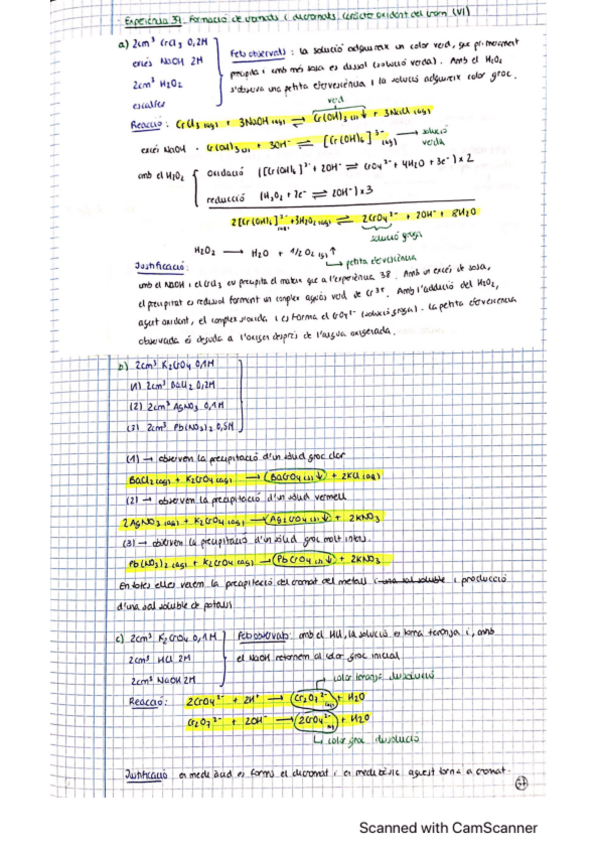 Experiència 39. Formació de cromats i dicromats. Caràcter oxidant del crom (VI)
a) 2cm³ CrCl₃ 0,2M
excés NaOH 2M
2cm³ H₂O₂
escalfar
Fets observats: la solució adquireix un color verd, que primerament
precipita i amb més sosa es dissol (solució verda). Amb el H₂O₂
s'observa una petita efervescència i la solució adquireix color groc.
verd
Reacció: CrCl₃ (aq) + 3NaOH (aq) ⇌ Cr(OH)₃ (s)↓ + 3NaCl (aq)
excés NaOH · Cr(OH)₃ (s) + 3OH⁻ ⇌ [Cr(OH)₆]³⁻ (aq) → solució
verda
amb el H₂O₂
oxidació ([Cr(OH)₆]³⁻ + 2OH⁻ ⇌ CrO₄²⁻ + 4H₂O + 3e⁻) × 2
reducció (H₂O₂ + 2e⁻ ⇌ 2OH⁻) × 3
2[Cr(OH)₆]³⁻ (aq) + 3H₂O₂ (aq) ⇌ 2CrO₄²⁻ + 2OH⁻ + 8H₂O
solució groga
H₂O₂ → H₂O + 1/2 O₂ (g)↑
petita efervescència
Justificació:
amb el NaOH i el CrCl₃ es precipita el mateix que a l'experiència 38. Amb un excés de sosa,
el precipitat es redissol formant un complex aquós verd de Cr³⁺. Amb l'addició del H₂O₂,
agent oxidant, el complex s'oxida i es forma el CrO₄²⁻ (solució groga). La petita efervescència
observada és deguda a l'oxigen després de l'aigua oxigenada.
b) 2cm³ K₂CrO₄ 0,1M
(1) 2cm³ BaCl₂ 0,2M
(2) 2cm³ AgNO₃ 0,1M
(3) 2cm³ Pb(NO₃)₂ 0,5M
(1) → observem la precipitació d'un sòlid groc clar
BaCl₂ (aq) + K₂CrO₄ (aq) → BaCrO₄ (s)↓ + 2KCl (aq)
(2) → observem la precipitació d'un sòlid vermell
2AgNO₃ (aq) + K₂CrO₄ (aq) → Ag₂CrO₄ (s)↓ + 2KNO₃
(3) → observem la precipitació d'un sòlid groc molt intens.
Pb(NO₃)₂ (aq) + K₂CrO₄ (aq) → PbCrO₄ (s)↓ + 2KNO₃
En totes elles veiem la precipitació del cromat del metall i una sal soluble i producció
d'una sal soluble de potassi
c) 2cm³ K₂CrO₄ 0,1M
2cm³ HCl 2M
2cm³ NaOH 2M
Fets observats: amb el HCl, la solució es torna taronja i, amb
el NaOH retornem al color groc inicial
color taronja dissolució
Reacció: 2CrO₄²⁻ + 2H⁺ → Cr₂O₇²⁻ (aq) + H₂O
Cr₂O₇²⁻ + 2OH⁻ → 2CrO₄²⁻ (aq) + H₂O
color groc dissolució
Justificació en medi àcid es forma el dicromat i en medi bàsic aquest torna a cromat.
Scanned with CamScanner